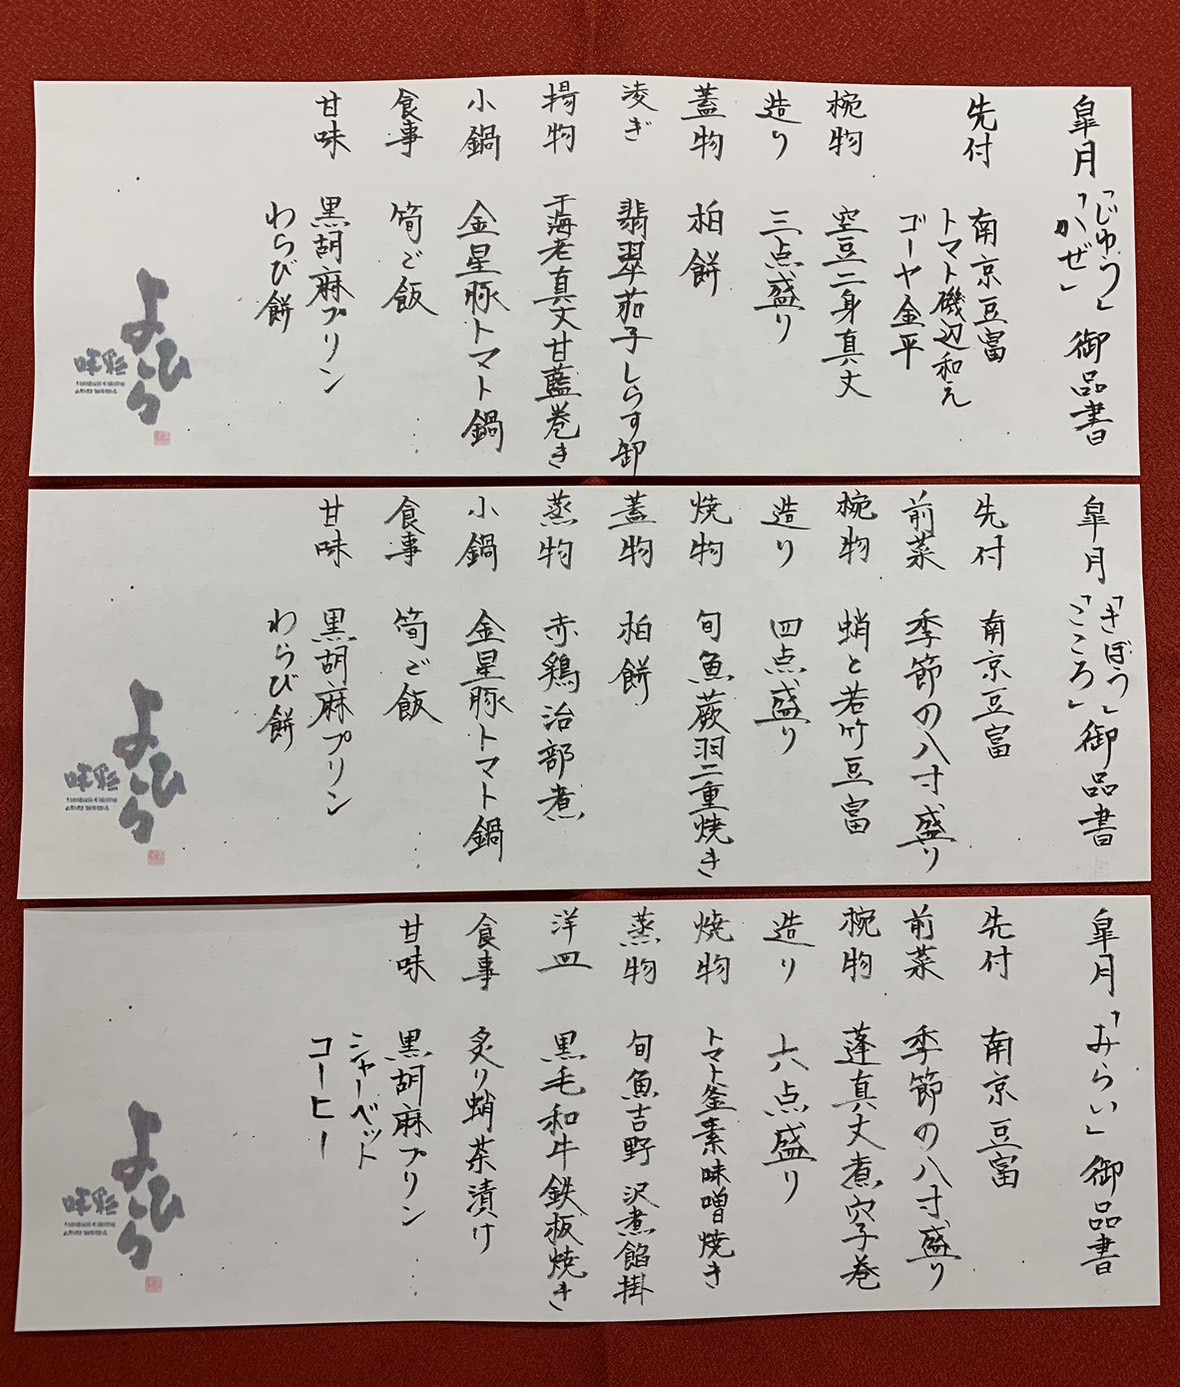 皐月「じゆう」「かぜ」御品書
先付 南京豆富
トマト磯辺和え
ゴーヤ金平
椀物 空豆二身真丈
造り 三点盛り
蓋物 柏餅
凌ぎ 翡翠茄子しらす卸
揚物 干海老真丈甘藍巻き
小鍋 金星豚トマト鍋
食事 筍ご飯
甘味 黒胡麻プリン
わらび餅
よひら
皐月「きぼう」「こころ」御品書
先付 南京豆富
前菜 季節の八寸盛り
椀物 蛸と若竹豆富
造り 四点盛り
焼物 旬魚蕨羽二重焼き
蓋物 柏餅
蒸物 赤鶏治部煮
小鍋 金星豚トマト鍋
食事 筍ご飯
甘味 黒胡麻プリン
わらび餅
よひら
皐月「みらい」御品書
先付 南京豆富
前菜 季節の八寸盛り
椀物 蓬真丈煮穴子巻
造り 六点盛り
焼物 トマト釜素味噌焼き
蒸物 旬魚吉野 沢煮餡掛
洋皿 黒毛和牛鉄板焼き
食事 炙り蛸茶漬け
甘味 黒胡麻プリン
シャーベット
コーヒー
よひら